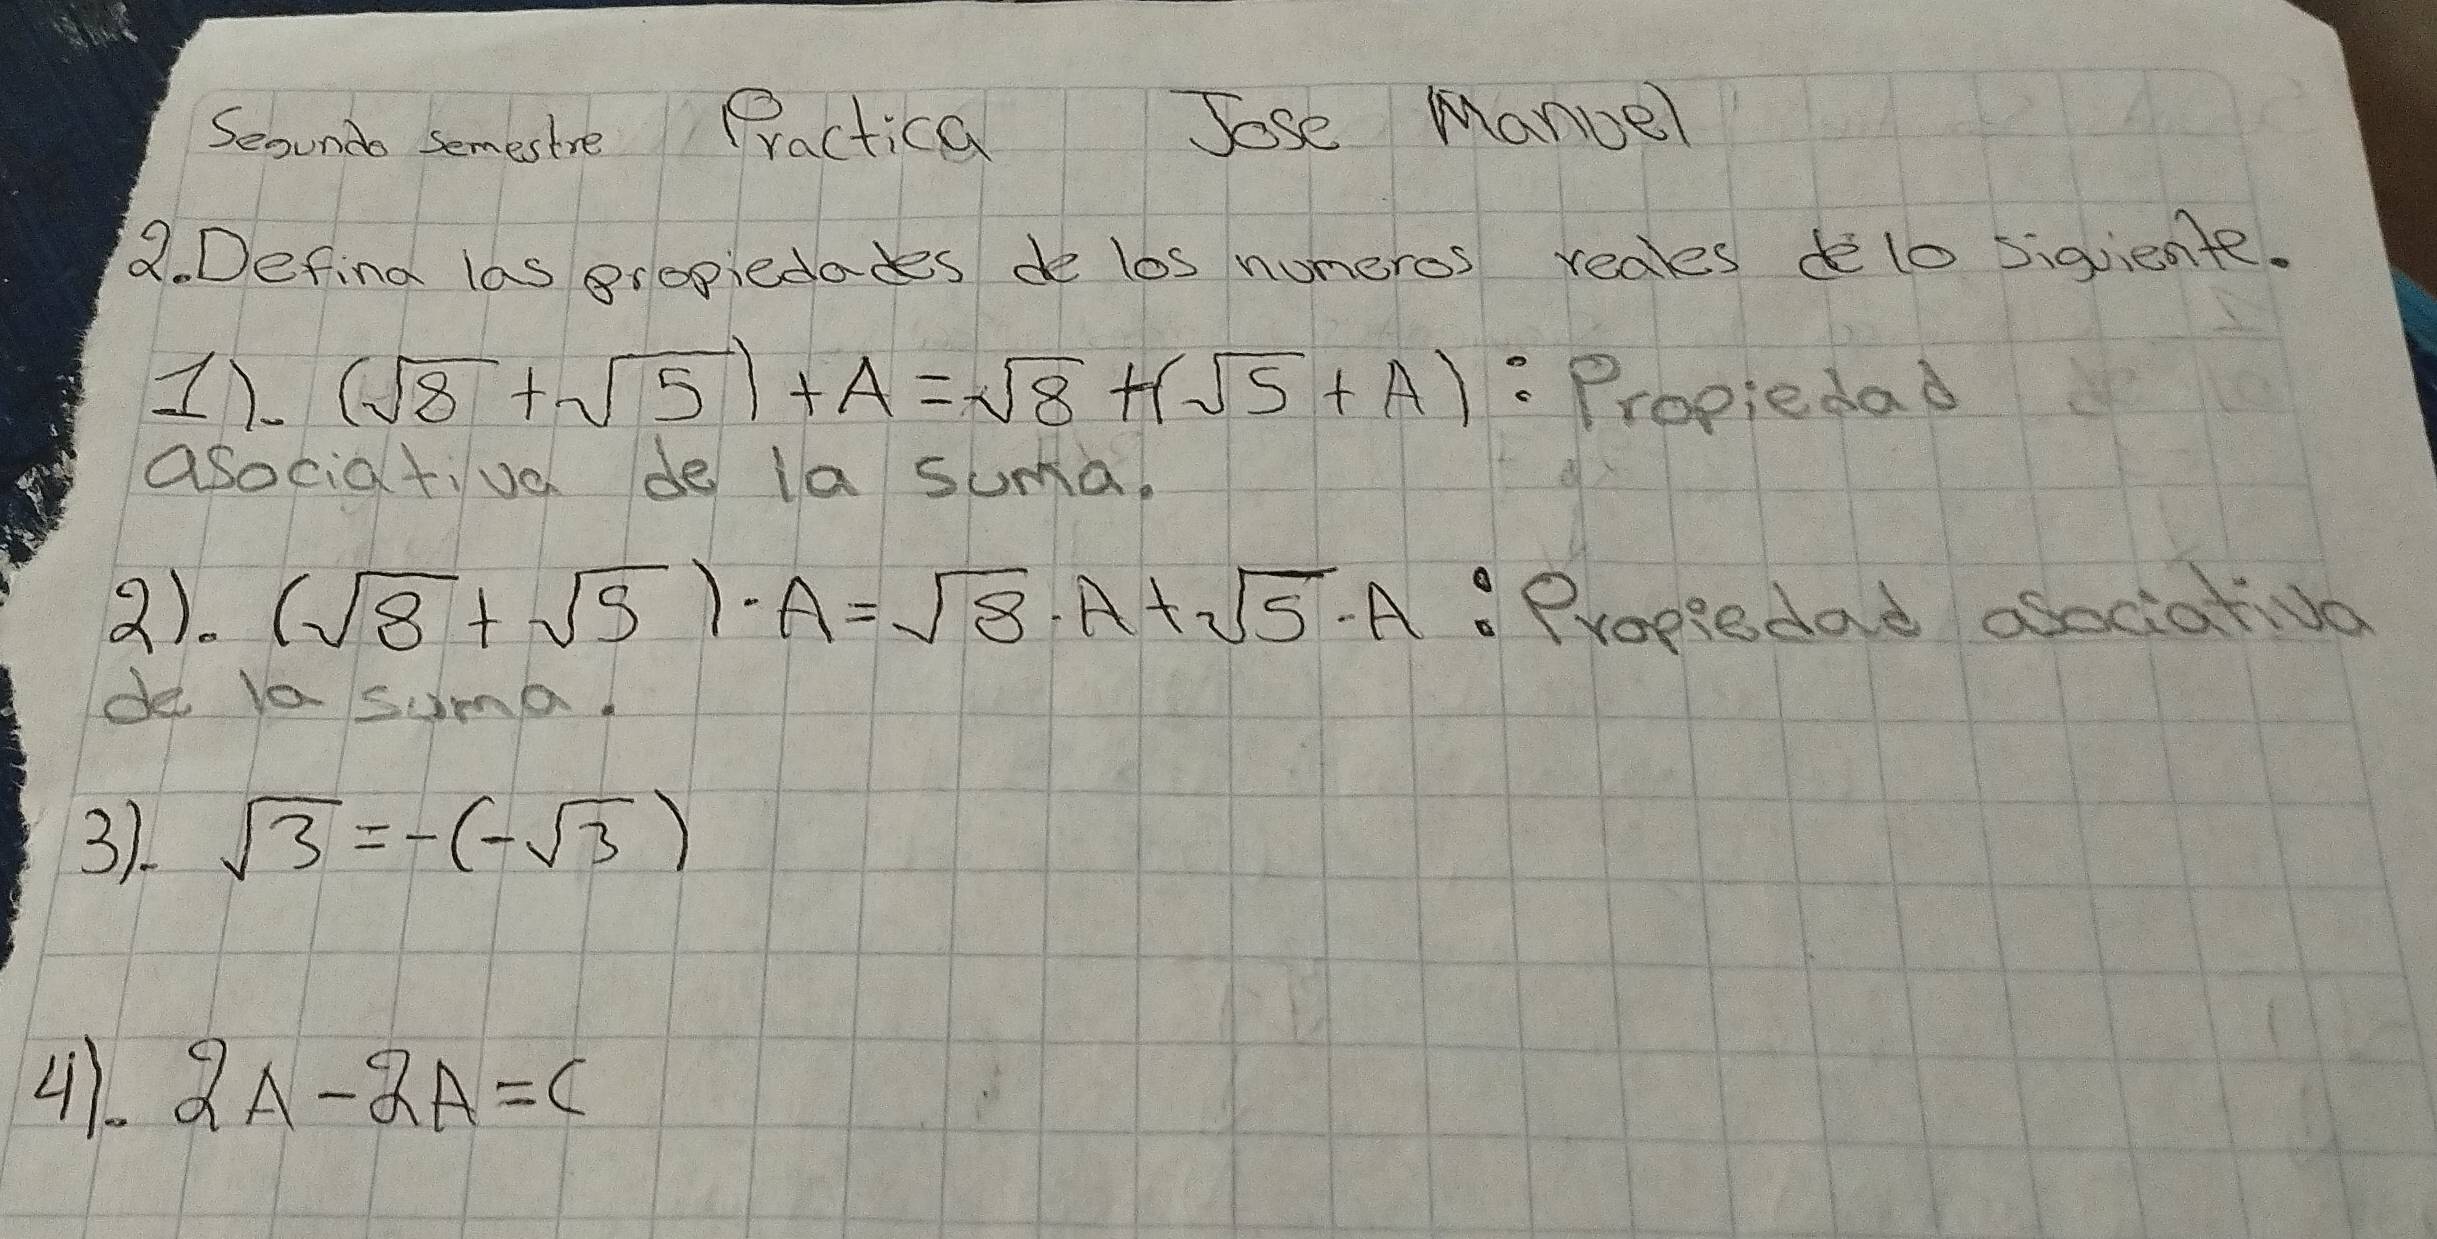 Segundo semestre Practica Jose Manuel
2. Defina las propiedades de los numeros reales de lo siguiente.
1). (√8 + √5) + A = √8 + (√5 + A) : Propiedad
asociativa de la suma.
2). (√8 + √5) · A = √8 · A + √5 · A : Propiedad asociativa
de la suma.
3). √3 = -(-√3)
4). 2A - 2A = C